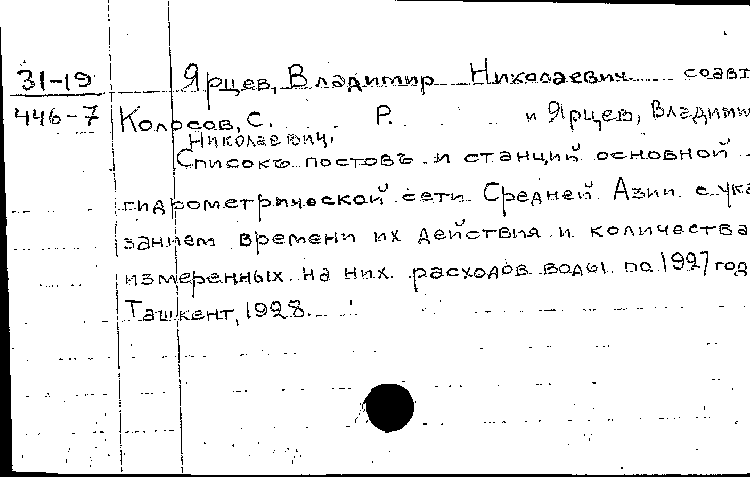 31-19 Ярцев, Владимир Николаевич соавт
446-7 Колосов, С. Р. и Ярцев, Владими
Николаевич,
Списокъ постовъ и станций основной
гидрометрической сети Средней Азии с ука
занием времени их действия и количества
измеренных на них расходов воды по 1927 год
Ташкент, 1928.